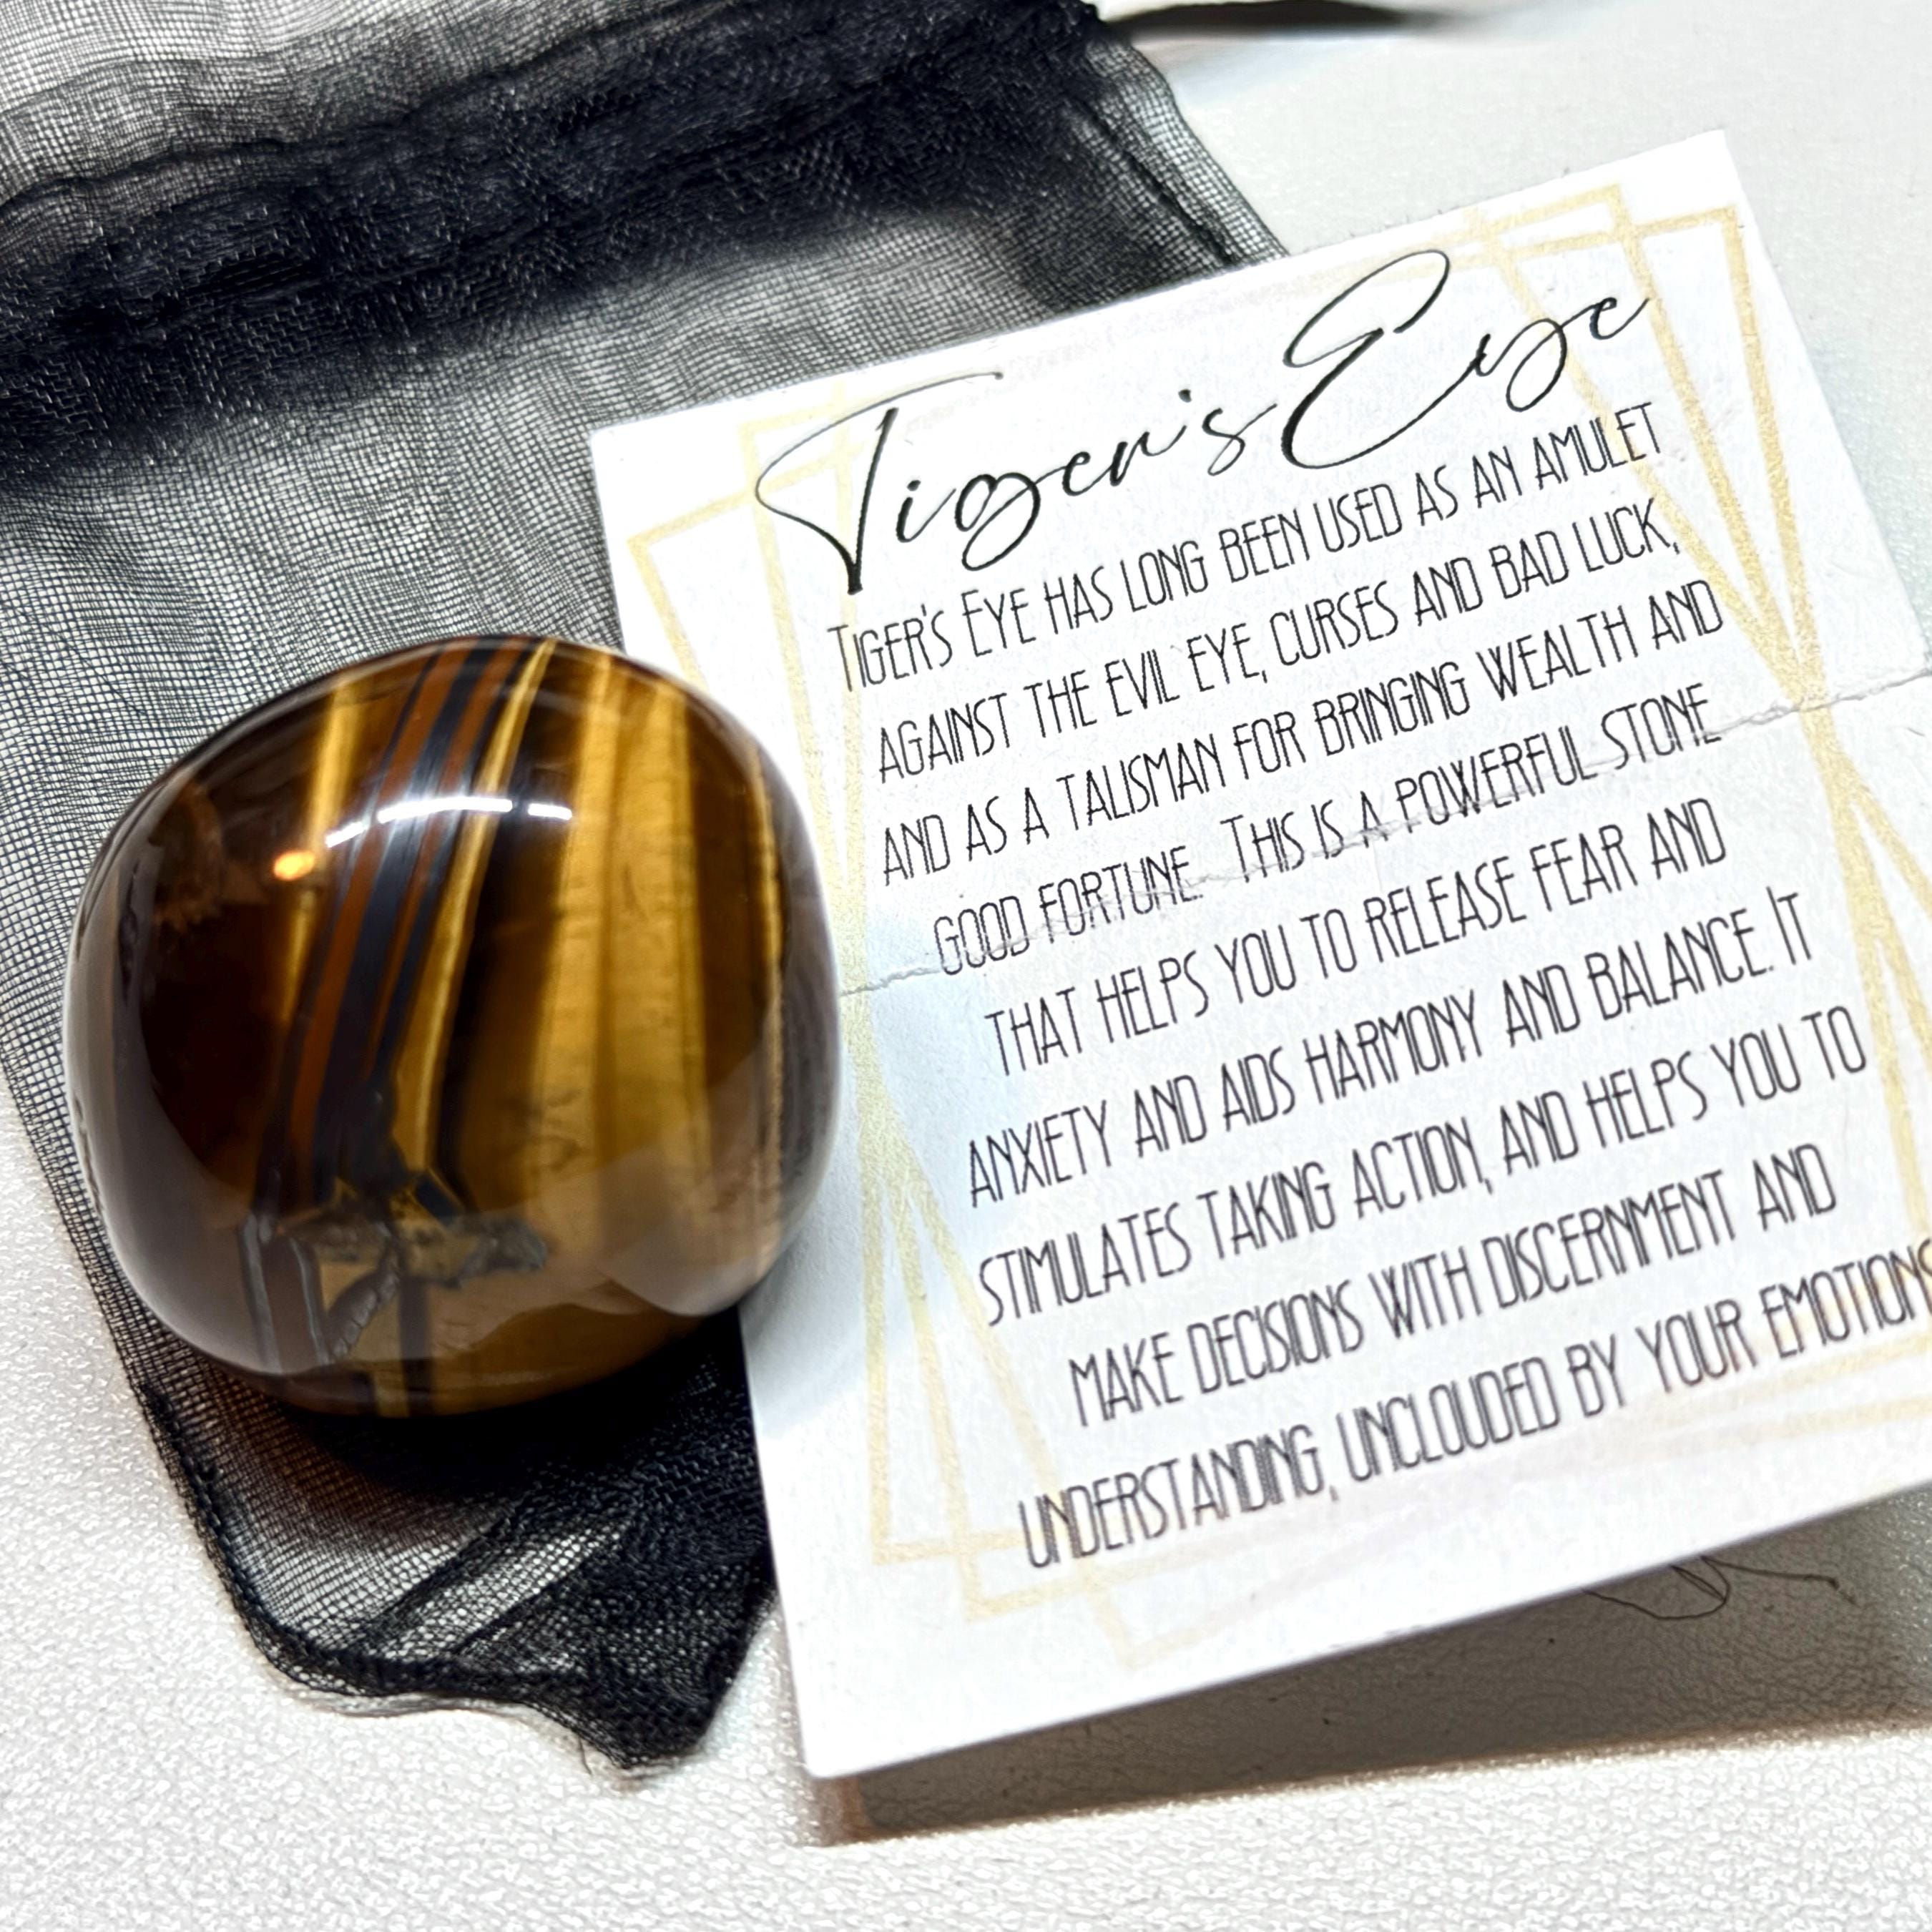 Tiger's Eye
Tiger's Eye has long been used as an amulet
against the evil eye, curses and bad luck,
and as a talisman for bringing wealth and
good fortune. This is a powerful stone
that helps you to release fear and
anxiety and aids harmony and balance. It
stimulates taking action, and helps you to
make decisions with discernment and
understanding, unclouded by your emotions